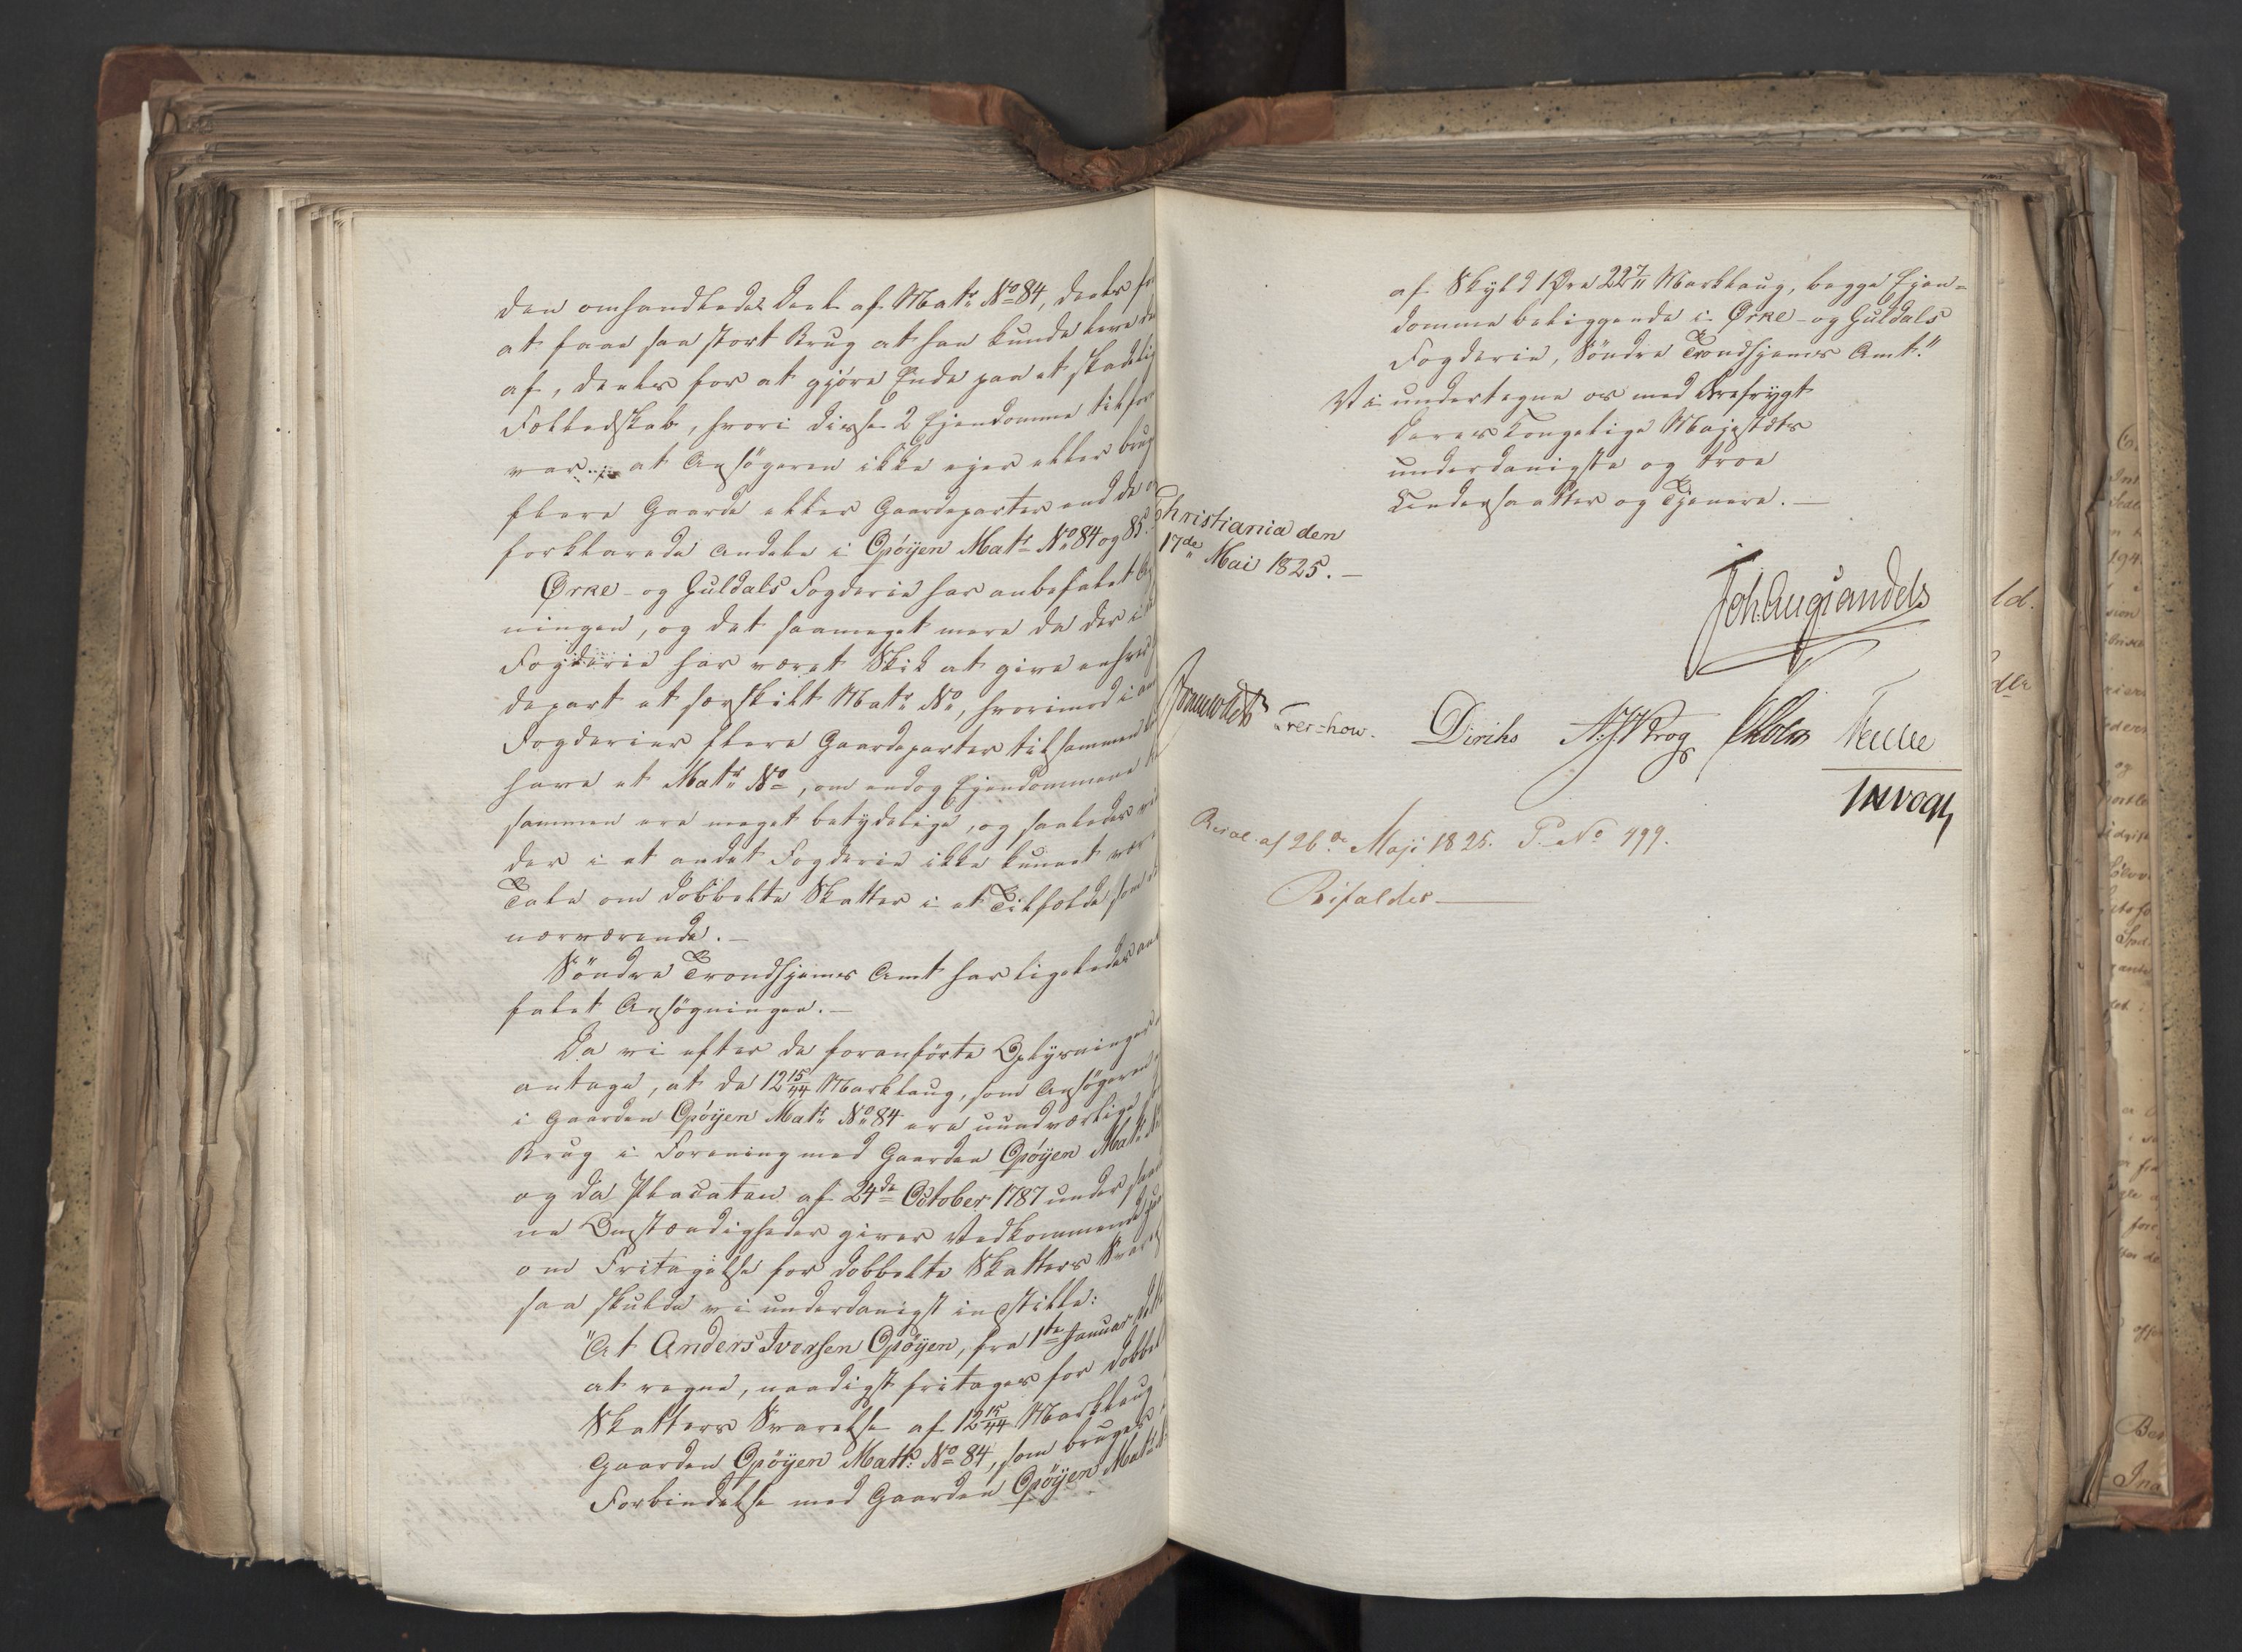 den omhandlede Deel af Matr. No 84, deels for
at faae saa stort Brug at han kunde leve der
af, deels for at gjøre Ende paa et skadelig
Fælledskab, hvori disse 2 Ejendomme tilforn
var; at Ansøgeren ikke ejer eller bruger
flere Gaarde eller Gaardeparter end de
forklarede Andele i Opøyen Matr. No 84 og 85.
Ørke- og Guldals Fogderie har anbefalet
ningen, og det saameget mere da der i
Fogderie har været Skik at give enhver
depart et særskilt Matr. No, hvorimod i
Fogderier flere Gaardeparter tilsammen
have et Matr. No, om endog Ejendommene
sammen ere meget betydelige, og saaledes
der i et andet Fogderie ikke kunnet være
Tale om dobbelte Skatter i et Tilfælde som
nærværende.—
Söndre Trondhjems Amt har ligeledes
falet Ansøgningen.—
Da vi efter de foranførte Oplysninger
antage, at de 12 15/44 Marklaug, som Ansøgeren
i Gaarden Opøyen Matr. No 84 ere uundværlige
Brug i Forening med Gaarden Opøyen Matr.
og da Placaten af 24de October 1787 under
ne Omstændigheder giver Vedkommende
om Fritagelse for dobbelte Skatters
saa skulde vi underdanigst indstille:
"At Anders Iversen Opøyen, fra 1te Januar
at regne, naadigst fritages for dobbelt
Skatters Svarelse af 12 15/44 Marklaug
Gaarden Opøyen Matr: No 84, som bruges
Forbindelse med Gaarden Opøyen Matr.
af Skyld 1 Øre 22 7/11 Marklaug, begge Ejen-
domme beliggende i Ørke- og Guldals
Fogderie, Söndre Trondhjems Amt."
Vi undertegne os med Ærefrygt
Deres Kongelige Majestæts
underdanigste og troe
Undersaatter og Tjenere.—
Christiania den
17de Mai 1825.—
Joh. Aug. Sandels
Sommerhielm Treschow. Diriks N. J. W. Krog Holst
J H Vogt
Resol. af 26de Maji 1825. P. No 499.
Bifaldes—